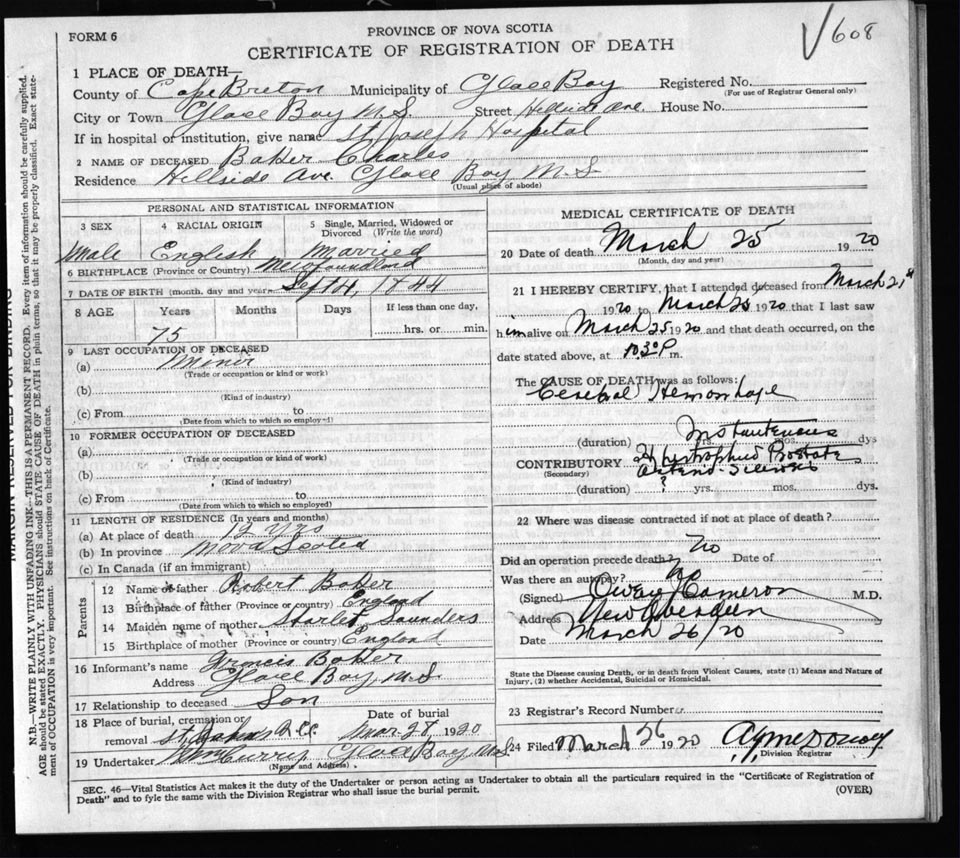 FORM 6
PROVINCE OF NOVA SCOTIA
CERTIFICATE OF REGISTRATION OF DEATH
608
1 PLACE OF DEATH—
County of Cape Breton Municipality of Glace Bay Registered No.
(For use of Registrar General only)
City or Town Glace Bay N.S. Street Hillside Ave. House No.
If in hospital or institution, give name St Joseph Hospital
2 NAME OF DECEASED Baker Charles
Residence Hillside Ave. Glace Bay N.S.
(Usual place of abode)
PERSONAL AND STATISTICAL INFORMATION
3 SEX
male
4 RACIAL ORIGIN
English
5 Single, Married, Widowed or Divorced (Write the word)
Married
6 BIRTHPLACE (Province or Country) Newfoundland
7 DATE OF BIRTH (month, day and year) Sept 4, 1844
8 AGE Years Months Days If less than one day,
75 hrs. or min.
9 LAST OCCUPATION OF DECEASED
(a) Miner
(Trade or occupation or kind or work)
(b)
(Kind of industry)
(c) From to
(Date from which to which so employed)
10 FORMER OCCUPATION OF DECEASED
(a)
(Trade or occupation or kind of work)
(b)
(Kind of industry)
(c) From to
(Date from which to which so employed)
11 LENGTH OF RESIDENCE (In years and months)
(a) At place of death 12 yrs
(b) In province Nova Scotia
(c) In Canada (if an immigrant)
Parents
12 Name of father Robert Baker
13 Birthplace of father (Province or country) England
14 Maiden name of mother Saunders
15 Birthplace of mother (Province or country) England
16 Informant's name Francis Baker
Address Glace Bay N.S.
17 Relationship to deceased Son
18 Place of burial, cremation or removal St Johns
Date of burial Mar. 27, 1920
19 Undertaker Curry, Glace Bay N.S.
(Name and Address)
MEDICAL CERTIFICATE OF DEATH
20 Date of death March 25 1920
(Month, day and year)
21 I HEREBY CERTIFY, that I attended deceased from March 21st
1920 to March 25 1920 that I last saw
him alive on March 25 1920 and that death occurred, on the
date stated above, at 10.30 P m.
The CAUSE OF DEATH was as follows:
Cerebral Hemorrhage
(duration) Instantenous yrs. mos. dys
CONTRIBUTORY Hypertrophied Prostate
(Secondary)
(duration) ? yrs. mos. dys.
22 Where was disease contracted if not at place of death?
Did an operation precede death? no Date of
Was there an autopsy? no
(Signed) Cameron M.D.
Address New Aberdeen
Date March 26/20
State the Disease causing Death, or in death from Violent Causes, state (1) Means and Nature of
Injury, (2) whether Accidental, Suicidal or Homicidal.
23 Registrar's Record Number
24 Filed March 26 1920
Division Registrar
SEC. 46—Vital Statistics Act makes it the duty of the Undertaker or person acting as Undertaker to obtain all the particulars required in the "Certificate of Registration of
Death" and to fyle the same with the Division Registrar who shall issue the burial permit.
(OVER)
MARGIN RESERVED FOR BINDING
N.B.—WRITE PLAINLY WITH UNFADING INK—THIS IS A PERMANENT RECORD. Every item of information should be carefully supplied.
AGE should be stated EXACTLY. PHYSICIANS should STATE CAUSE OF DEATH in plain terms, so that it may be properly classified. Exact state-
ment of OCCUPATION is very important. See instructions on back of Certificate.